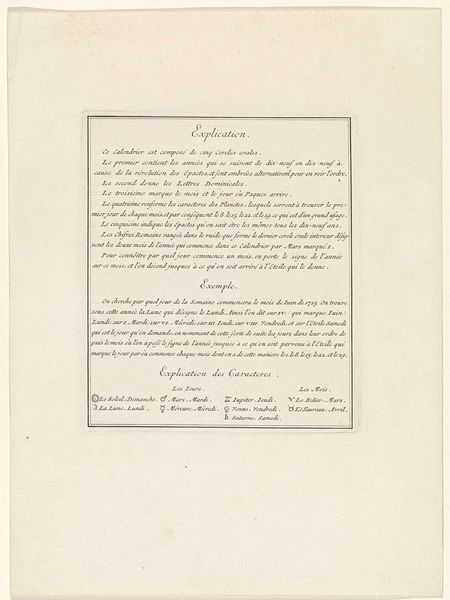 Explication.
Ce Calendrier est composé de cinq Cercles ovales.
Le premier contient les années qui se suivent de dix-neuf ou dix-neuf à
cause de la révolution des Epactes, et sont ombrées alternativem.t pour en voir l'ordre.
Le second donne les Lettres Dominicales.
Le troisième marque le mois et le jour où Pâques arrive.
Le quatrième renferme les caractères des Planetes, lesquels servent à trouver le pre-
mier jour de chaque mois, et par conséquent le 8. le 15. le 22. et le 29. ce qui est d'un grand usage.
Le cinquième indique les Epactes qu'on sait être les mêmes tous les dix-neuf ans.
Les Chifres Romains rangés dans le vuide que forme le dernier cercle ovale intérieur désig-
nent les douze mois de l'année qui commence dans ce Calendrier par Mars marqué I.
Pour connoître par quel jour commence un mois, on porte le signe de l'année
sur ce mois, et l'on décend jusques à ce qu'on soit arrivé à l'Etoile qui le donne.
Exemple.
On cherche par quel jour de la Semaine commencera le mois de Juin de 1753. On trouve
sous cette année la Lune qui désigne le Lundi. Ainsi l'on dit sur IV. qui marque Juin
Lundi, sur I. Mardi, sur VI. Mécredi, sur III. Jeudi, sur VIII. Vendredi, et sur l'Etoile Samedi
qui est le jour qu'on demande, en nommant de cette sorte de suite les jours dans leur ordre de
puis le mois où l'on a posé le signe de l'année jusques à ce qu'on soit parvenu à l'Etoile qui
marque le jour par où commence chaque mois dont on a de cette manière le 1. le 8. le 15. le 22. et le 29.
Explication des Caracteres.
Les Jours. Les Mois.
☉ Le Soleil, Dimanche. ♂ Mars, Mardi. ♃ Jupiter, Jeudi. ♈ Le Belier, Mars.
☽ La Lune, Lundi. ☿ Mercure, Mécredi. ♀ Venus, Vendredi. ♉ Le Taureau, Avril.
♄ Saturne, Samedi.